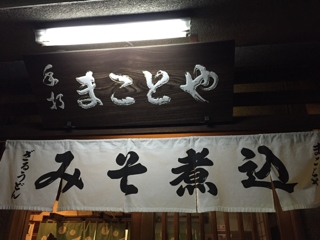 手打 まことや
みそ煮込
ざるうどん